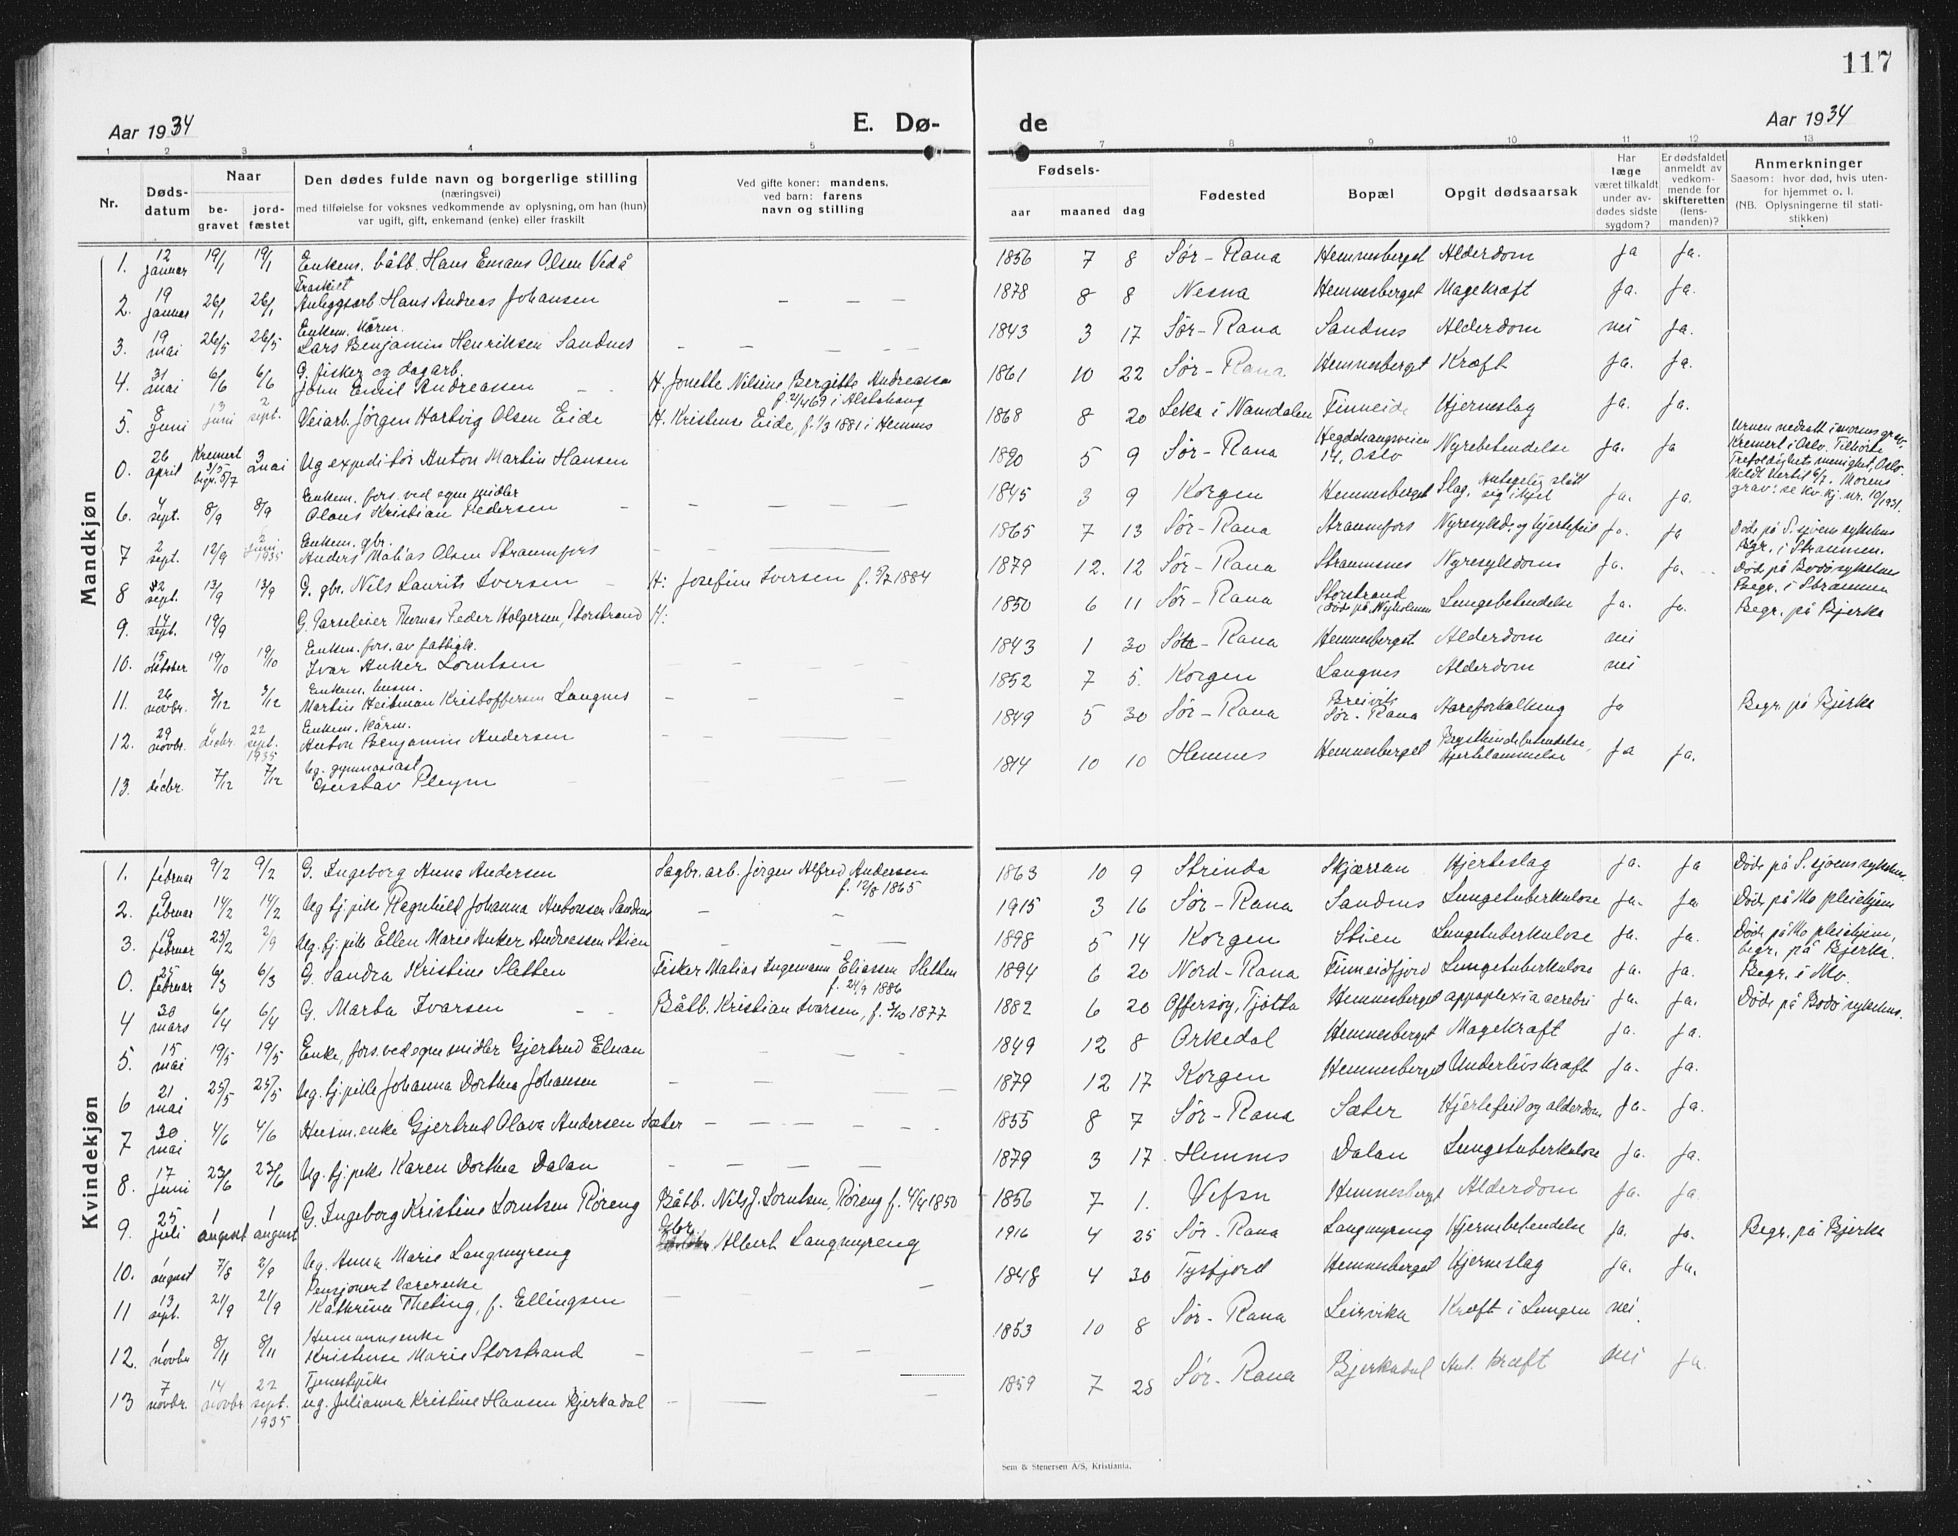 117
Aar 1934 E. Dø- de Aar 1934
1 2 3 4 5 7 8 9 10 11 12 13
Nr. Døds-datum Naar be-gravet jord-fæstet Den dødes fulde navn og borgerlige stilling (næringsvei) med tilføielse for voksnes vedkommende av oplysning, om han (hun) var ugift, gift, enkemand (enke) eller fraskilt Ved gifte koner: mandens, ved barn: farens navn og stilling Fødsels- aar maaned dag Fødested Bopæl Opgit dødsaarsak Har læge været tilkaldt under av-dødes sidste sygdom? Er dødsfaldet anmeldt av vedkom-mende for skifteretten (lens-manden)? Anmerkninger Saasom: hvor død, hvis uten-for hjemmet o. l. (NB. Oplysningerne til stati-stikken)
Mandkjøn
1. 12 januar 19/1 19/1 Enkem. båtb. Hans Emans Olsen Vedå 1856 7 8 Sør-Rana Hemnesberget Alderdom Ja Ja.
2. 19 januar 26/1 26/1 Fraskilt Anleggsarb Hans Andreas Johansen — — — 1878 8 8 Nesna Hemnesberget Magekræft Ja. Ja.
3. 19 mai 26/5 26/5 Enkem. kårm. Lars Benjamin Henriksen Sandnes — — — — 1843 3 17 Sør-Rana Sandnes Alderdom nei Ja.
4. 31 mai 6/6 6/6 G. fisker og dagarb. John Emil Andreassen H. Jonette Nilsine Bergitte Andreassen f. 2/4 69 i Alstahaug 1861 10 22 Sør-Rana Hemnesberget Kræft Ja. Ja.
5. 8 juni 13 juni 2 sept. Veiarb. Jørgen Hartvig Olsen Eide H. Kristense Eide, f. 1/3 1881 i Hemnes 1868 8 20 Leka i Namdalen Finneide Hjerneslag Ja. Ja.
0. 26 april Kremert 3/5 begr. 5/7 3 mai Ug expeditør Anton Martin Hansen 1890 5 9 Sør-Rana Hegdehaugsveien 14, Oslo Nyrebetendelse Ja. Ja Urnen nedsatt i morens grav. Kremert i Oslo. Tilhørte Trefoldighets menighet, Oslo. Morens grav: se Kv.kj. nr. 10/1931.
6. 4 sept. 8/9 8/9 Enkem. fors. ved egne midler Olaus Kristian Pedersen — — — — 1845 3 9 Korgen Hemnesberget Slag. Antagelig slått sig ihjel Ja. Ja.
7 2 sept. 12/9 2 juni 1935 Enkem. gbr. Anders Matias Olsen Straumfors — — — — 1865 7 13 Sør-Rana Straumfors Nyresykd. og hjertefeil Ja. Ja Døde på S.sjøens sykehus Begr. i Straumen.
8 12 sept. 13/9 13/9 G. gbr. Nils Laurits Iversen H: Josefine Iversen f. 5/7 1884 1879 12. 12 Sør-Rana Straumsnes Nyresykdoms Ja. Ja. Død på Bodø sykehus Begr. i Straumen
9. 14 sept. 19/9 G. Parseleier Thomas Peder Holgersen, Storstrand H: 1850 6 11 Sør-Rana Storstrand (død på Nyholmen Lungebetendelse Ja. Ja. Begr. på Bjerka
10. 15 oktober 19/10 19/10 Enkem. fors. av fattigk. Ivar Anker Lorntsen 1843 1 30 Sør-Rana Hemnesberget Alderdom nei
11. 26 novbr. 3/12 3/12 Enkem. husm. Martin Heitman Kristoffersen Langnes — — — — 1852 7 5. Korgen Langnes Alderdom nei
12. 29 novbr. 6 decbr. 22 sept. 1935 Enkem. kårm. Anton Benjamin Andersen 1849 5 30 Sør-Rana Breivik Sør-Rana Aareforkalkning Ja Begr på Bjerka
13. 1 decbr. 7/12 7/12 Ug. gymnasiast Gustav Pleym 1914 10 10 Hemnes Hemnesberget Brysthindebetendelse, Hjertelammelse Ja Ja.
Kvindekjøn
1. 1 februar 9/2 9/2 G. Ingeborg Anna Andersen Sagbr. arb. Jørgen Alfred Andersen f. 12/8 1865 1863 10 9 Strinda Skjærran Hjerteslag Ja. Ja Døde på S.sjøens sykehus.
2. 9 februar 14/2 14/2 Ug tj. pike Ragnhild Johanna Antonsen Sandnes — — 1915 3 16 Sør-Rana Sandnes Lungetuberkulose Ja. Ja Døde på Mo pleiehjem
3. 19 februar 23/2 2/9 Ug. tj. pike Ellen Marie Anker Andreassen Stien — — — 1898 5 14 Korgen Stien Lungetuberkulose Ja. Ja. Døde på Mo pleiehjem, begr. på Bjerka.
0. 25 februar 6/3 6/3 G. Sandra Kristine Sletten Fisker Matias Ingemann Eliassen Sletten f. 24/9 1886 1894 6 20 Nord-Rana Finneidfjord Lungetuberkulose Ja. Ja. Begr. i Mo.
4 30 mars 6/4 6/4 G. Marta Ivarsen Båtb. Kristian Ivarsen, f. 3/10 1877 1882 6 20 Offersøy, Tjøtta Hemnesberget appoplexia cerebri Ja. Ja. Døde på Bodø sykehus.
5. 15 mai 19/5 19/5 Enke, fors. ved egne midler Gjertrud Elnan — — — 1849 12 8 Orkedal Hemnesberget Magekræft Ja. Ja.
6 21 mai 25/5 25/5 Ug. tj. pike Johanna Dorthea Johansen — — — 1879 12 17 Korgen Hemnesberget Underlivskræft Ja. Ja.
7 30 mai 4/6 4/6 Husm. enke Gjertrud Olava Andersen Sæter — — — — 1855 8 7 Sør-Rana Sæter Hjertefeil og alderdom Ja. Ja.
8. 17 juni 23/6 23/6 Ug. tj. pike Karen Dorthea Dalan — — — — 1879 3 17 Hemnes Dalan Lungetuberkulose Ja. Ja.
9. 25 juli 1 august 1 august G. Ingeborg Kristine Lorntsen Røreng Båtb. Nils J. Lorntsen, Røreng f. 4/4 1850 1856 7 1. Vefsn Hemnesberget Alderdom Ja. Ja.
10. 1 august 7/8 2/9 Ug. Anna Marie Langmyreng Gbr. Albert Langmyreng 1916 4 25 Sør-Rana Langmyreng Hjernebetendelse Ja. Ja. Begr. på Bjerka
11 13 sept. 21/9 21/9 Pensjonert lærerenke Kathrine Theting, f. Ellingsen — — 1848 4 30 Tysfjord Hemnesberget Hjerneslag Ja. Ja.
12. 1 novbr 8/11 8/11 Husmannsenke Kristense Marie Storstrand — — — 1853 10 8 Sør-Rana Leirvika Kræft i Lungen nei.
13 7 novbr. 14 novbr 22 sept. 1935 Tjenestpike ug. Julianna Kristine Hansen Bjerkadal — — — 1859 7 28 Sør-Rana Bjerkadal Ant. kræft nei Ja.
Sem & Stenersen A/S, Kristiania.